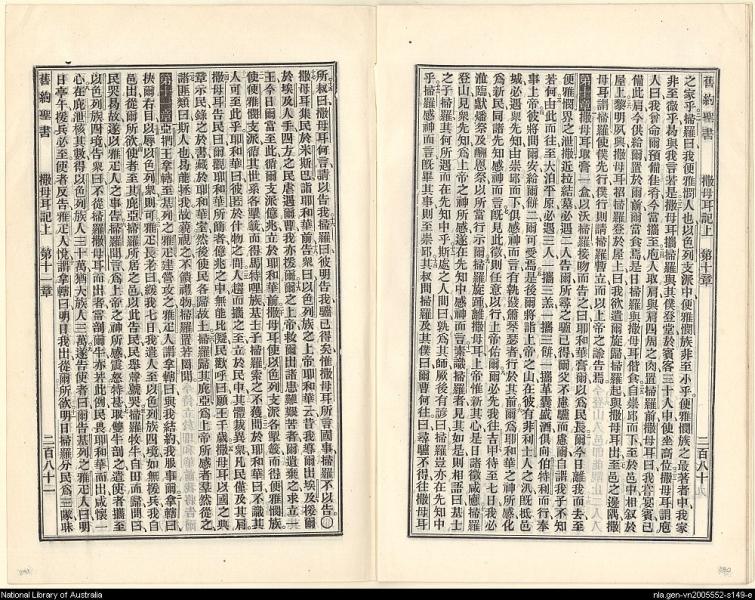 舊約聖書 撒母耳記上 第十章 二百八十
之家乎掃羅曰我便雅憫人也以色列支派中便雅憫族非至小乎便雅憫族之最著者中我家
非至微乎曷與我言若是撒母耳攜掃羅與其僕登堂於賓客三十人中使坐高位撒母耳謂庖
人曰我曾命爾預備佳肴今當攜至庖人取肩與肩四周之肉置掃羅前撒母耳曰我言宴賓已
備此肩今供給爾置於爾前爾當食焉是日掃羅與撒母耳偕食自崇邱而下至於邑中相叙於
屋上黎明夙興撒母耳招掃羅登於屋上曰我欲遣爾旋歸掃羅起與撒母耳出至邑之邊隅撒
母耳謂掃羅使僕先行僕行則請掃羅暫立而以上帝之諭告焉
第十章 撒母耳取膏一盒以沃掃羅接吻而告之曰耶和華膏爾以為民長爾今日離我而去至
便雅憫界之泄撒近拉結墓必遇二人告爾所尋之驢已得爾父不慮驢而慮爾自謂我子不知
若何由此而往至大泊平原必遇三人一攜三羔一攜三餅一攜革囊盛酒俱向伯特利而行奉
事上帝彼將問爾安給爾餅二爾可受焉是後爾將詣上帝之山在彼有非利士人之汛旣抵邑
城必遇衆先知由崇邱而下俱感神而言有執鼗簫琴瑟者行於其前爾為耶和華之神所感化
為新民同諸先知感神而言旣見此徵則任意以行上帝佑爾爾必先我往吉甲待至七日我必
涖臨獻燔祭及酬恩祭以所當行示爾掃羅旋踵離撒母耳上帝惟新其心是日諸徵咸應掃羅
登山見衆先知為上帝之神所感遂在先知中感神而言素識掃羅者見其如是則相語曰基士
之子掃羅其何所遇而在先知中乎斯處之人問曰孰為其師厥後有諺曰掃羅豈亦在先知中
乎掃羅感神而言旣畢其事則至崇邱其叔問掃羅及其僕曰爾曹何往曰尋驢不得往撒母耳
所叔曰撒母耳何言請以告我掃羅曰彼明告我驢已得矣惟撒母耳所言國事掃羅不以告〇
撒母耳集民於米斯巴詣耶和華前告衆曰以色列族之上帝耶和華云昔我導爾出埃及援爾
於埃及人手四方之民虐遇爾曹我亦援爾爾之上帝救爾出諸患難煩苦者爾遺棄之求立一
王今日爾當至此循爾支派億兆立於耶和華前撒母耳使以色列支派各掣籤而得便雅憫族
使便雅憫支派循其世系各掣籤而得馬特哩族基士子掃羅索之不獲問於耶和華曰不識其
人可至此乎耶和華曰彼匿於什物之間人趨而攜之至立於民中其體裁異衆凡民僅及其肩
撒母耳告民曰爾觀耶和華所簡者億兆之中無能比擬民歡呼曰願王千歲撒母耳以國之典
章示民錄之於書藏於耶和華室然後使民各歸故土掃羅歸其庇亞為上帝所感者羣然從之
諸匪類曰斯人也曷能拯我故藐視之不饋禮物掃羅置若罔聞
第十一章 亞捫王拿轄至基列之雅疋建營攻之雅疋人謂拿轄曰與我結約我服事爾拿轄曰
抉爾右目以辱以色列衆則可雅疋長老曰緩我七日我遣人至以色列四境如無援兵我自
邑出從爾所欲使者至其庇亞掃羅所居之邑以此告民民舉聲號哭掃羅牧牛自田而歸問曰
民哭曷故遂以雅疋人之事告掃羅聞言為上帝之神所感震怒特甚取雙牛剖之遣使者攜至
以色列族四境告衆曰不從掃羅撒母耳而出者當剖爾牛亦若此例民畏耶和華而出咸懷一
心在庇泄核其數得以色列族人三十萬猶大族人三萬遂告使者曰爾告基列之雅疋人曰明
日亭午援兵必至使者反告雅疋人悅謂拿轄曰明日我出從爾所欲明日掃羅分民為三隊昧
舊約聖書 撒母耳記上 第十一章 二百八十一
National Library of Australia
nla.gen-vn2005552-s149-e